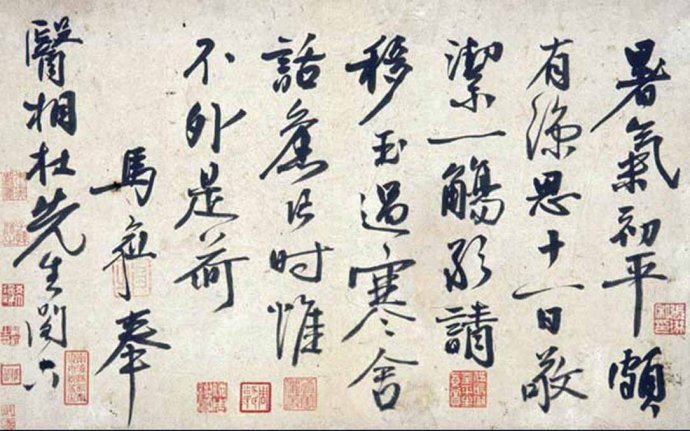 暑氣初平頗
有涼思十一日敬
潔一觴敢請
移玉過寒舍
話舊片时惟
不外是荷
馬琬奉
醫相杜先生閣下